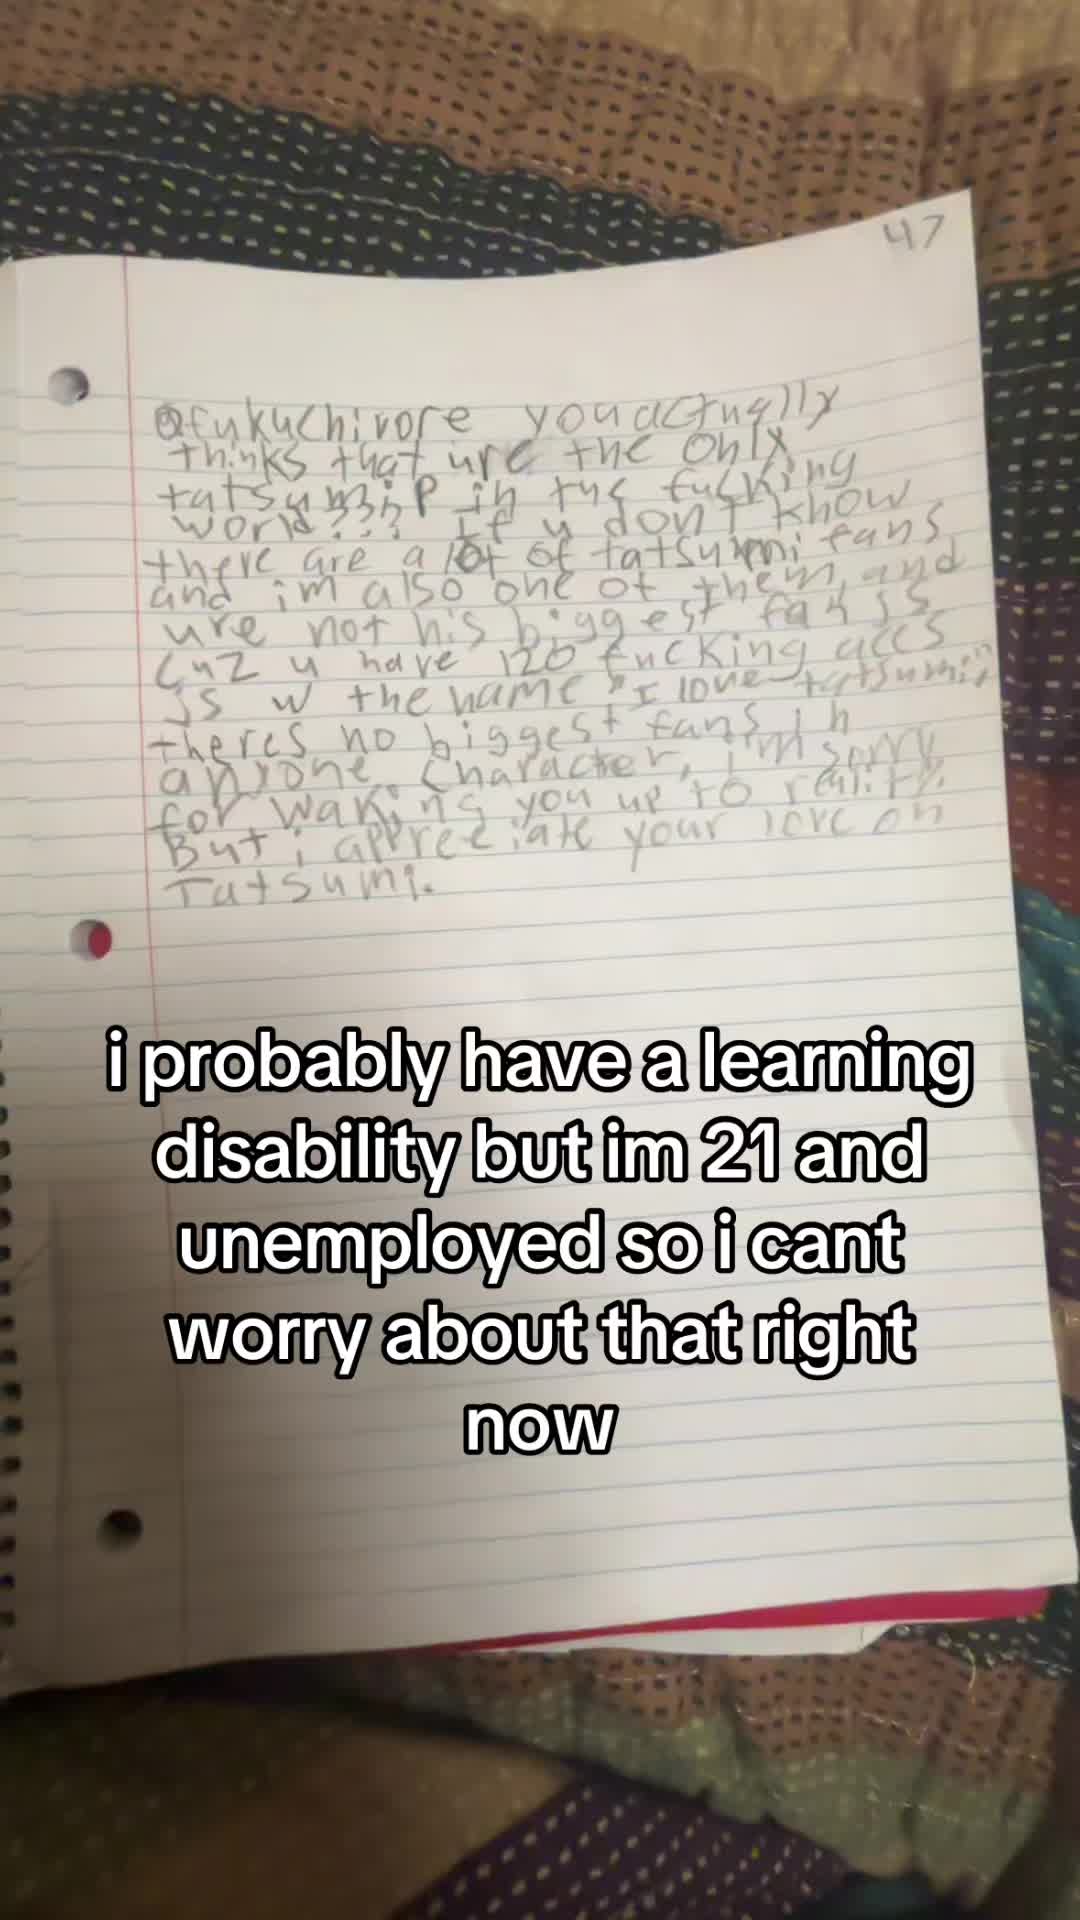 47
@fukuchivore you actually
thinks that ure the only
tatsumiP in the fucking
world??? If u don't know
there are a lot of tatsumi fans
and im also one of them, and
ure not his biggest fan js
cuz u have 120 fucking accs
js w the name "I love tatsumi"
theres no biggest fans in
anyone character, i'm sorry
for waking you up to reality.
But i appreciate your love on
Tatsumi.
i probably have a learning
disability but im 21 and
unemployed so i cant
worry about that right
now